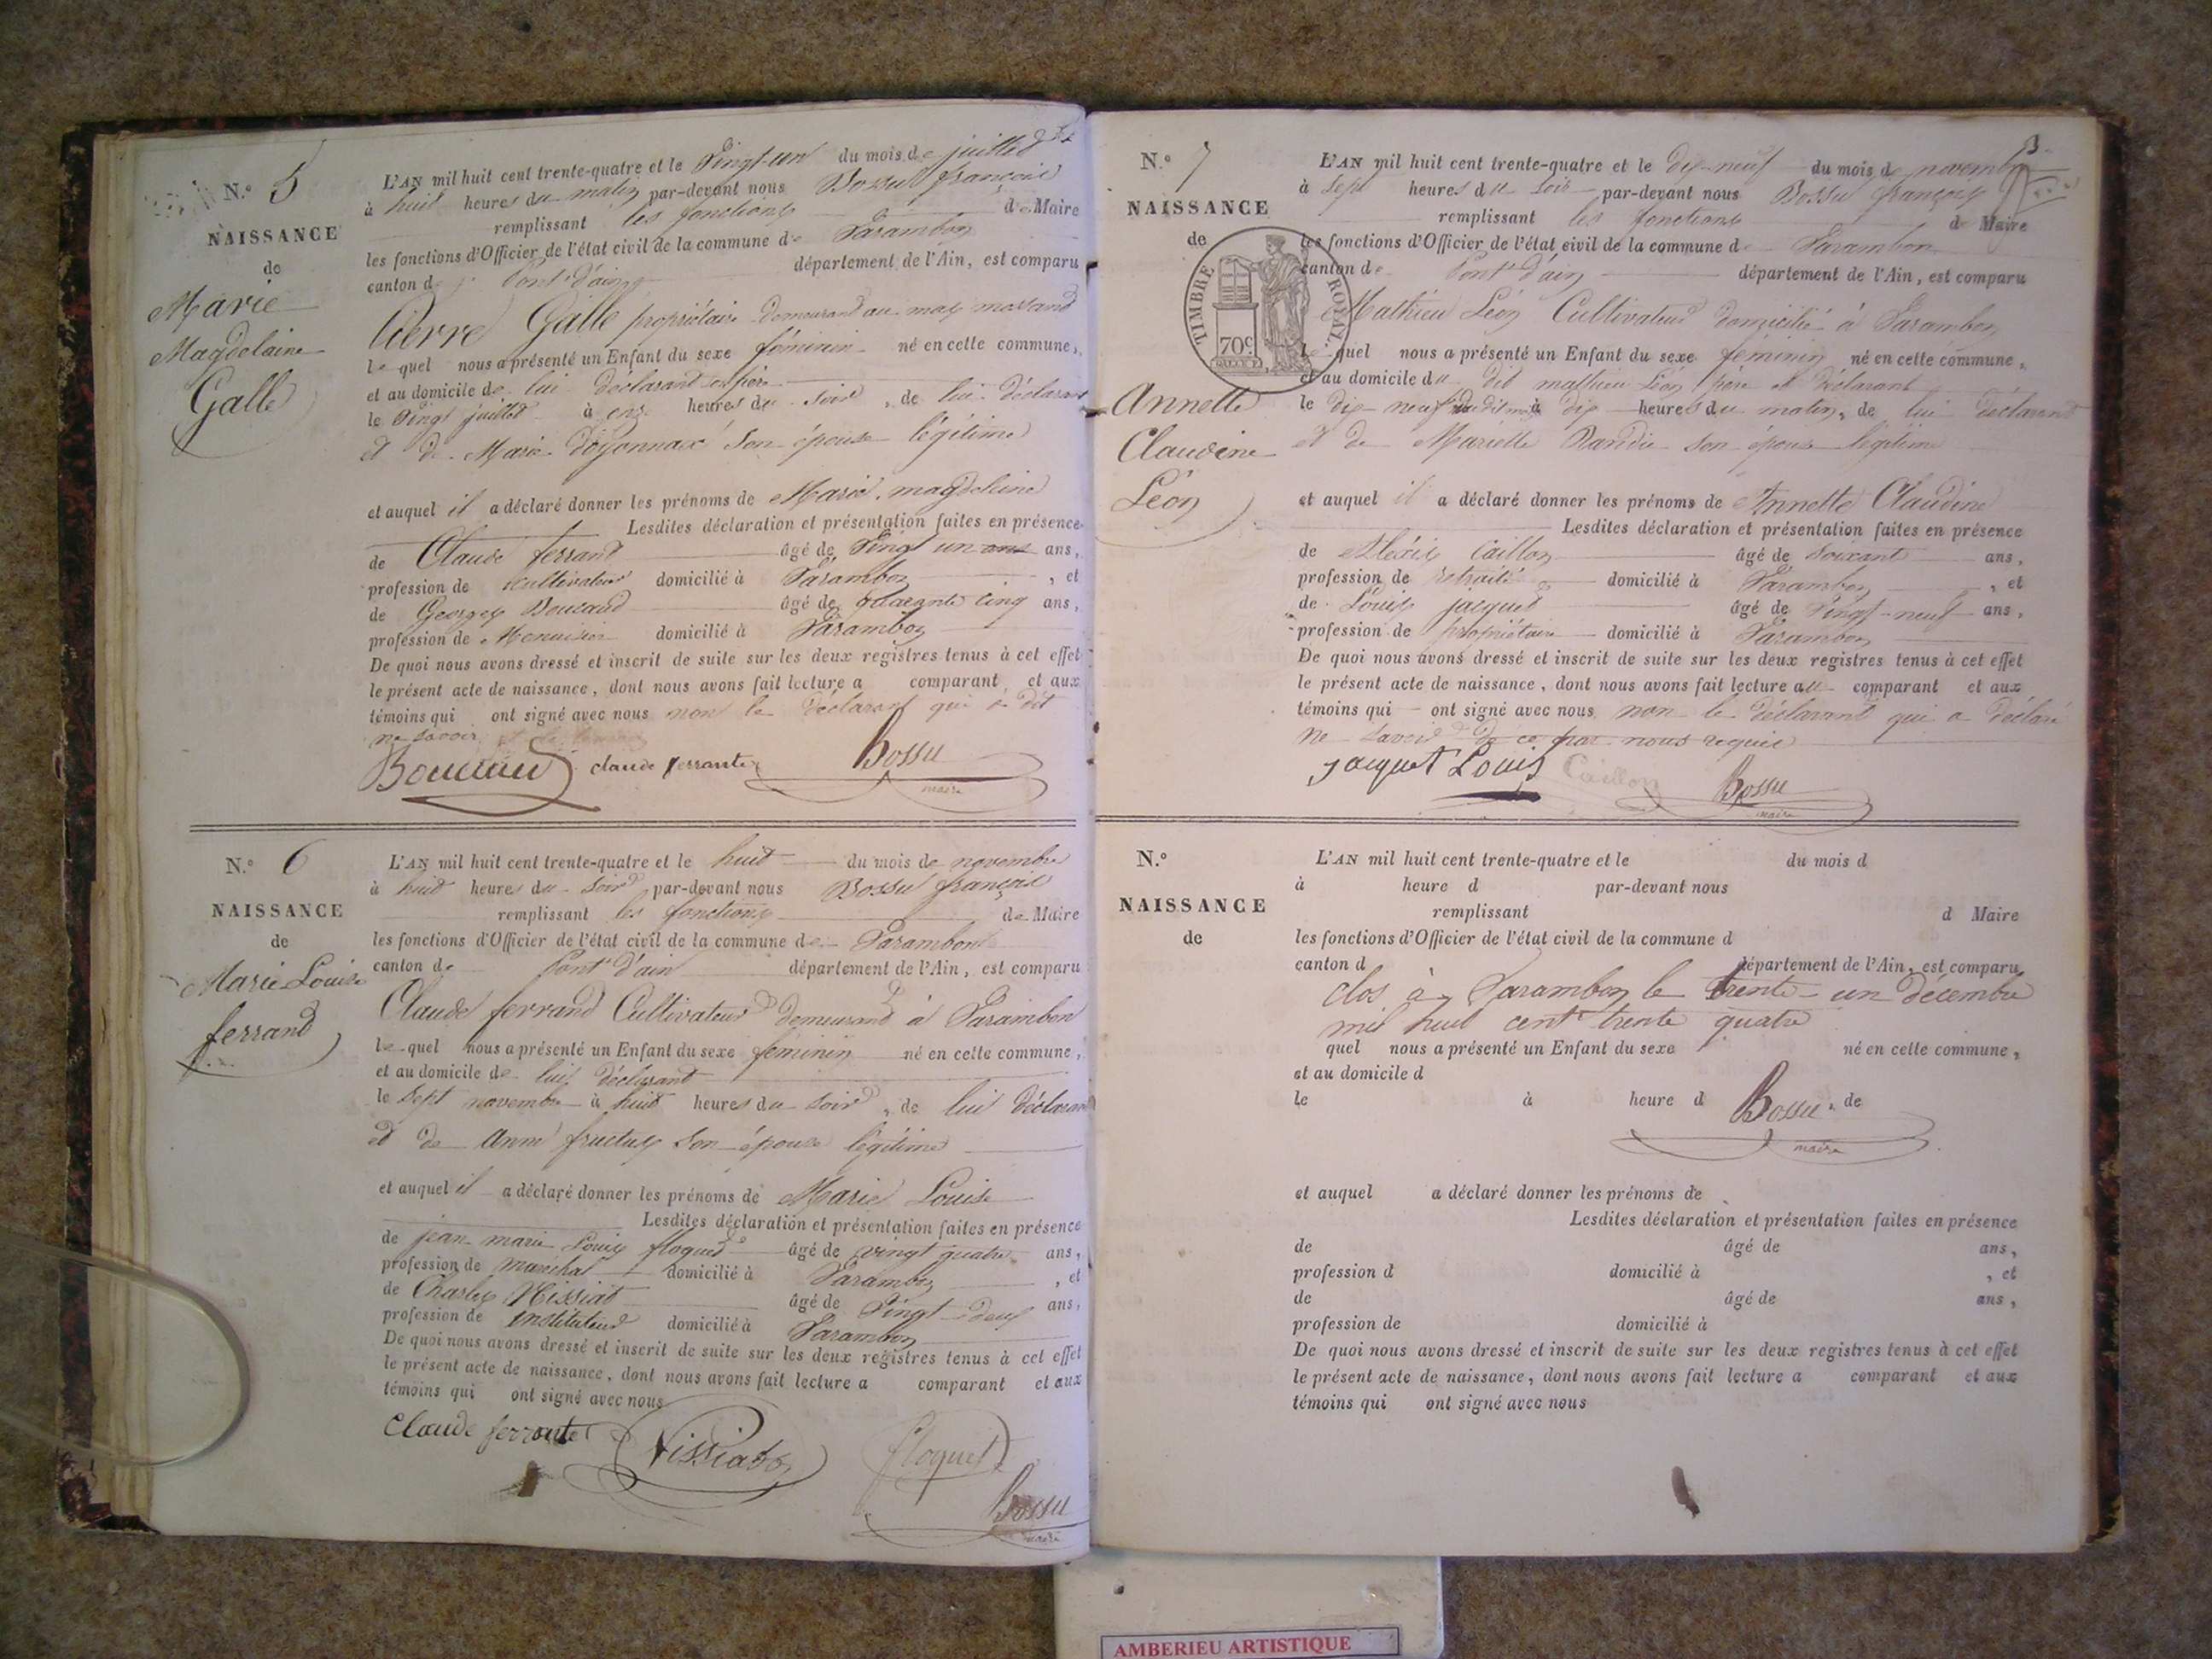 N.° 5
NAISSANCE
de
Marie
Magdelaine
Galle
L'AN mil huit cent trente-quatre et le Vingt-un du mois de juillet
à huit heures du matin par-devant nous Bossu françois
remplissant les fonctions de Maire
les fonctions d'Officier de l'état civil de la commune de Varambon
canton de Pont d'ain département de l'Ain, est comparu
Pierre Galle propriétaire demeurant au mas massard
le quel nous a présenté un Enfant du sexe féminin né en cette commune,
et au domicile de lui déclarant et père
le Vingt juillet à onze heures du soir, de lui déclarant
et de Marie Doyonnax son épouse légitime
et auquel il a déclaré donner les prénoms de Marie magdeleine
Lesdites déclaration et présentation faites en présence
de Claude ferrand âgé de Vingt un ans ans,
profession de cultivateur domicilié à Varambon, et
de Georges Boucaud âgé de quarante cinq ans,
profession de Menuisier domicilié à Varambon
De quoi nous avons dressé et inscrit de suite sur les deux registres tenus à cet effet
le présent acte de naissance, dont nous avons fait lecture a comparant et aux
témoins qui ont signé avec nous non le déclarant qui a dit
ne savoir
Boucaud claude ferrante Bossu
maire
N.° 6
NAISSANCE
de
Marie Louise
ferrand
L'AN mil huit cent trente-quatre et le huit du mois de novembre
à huit heures du soir par-devant nous Bossu françois
remplissant les fonctions de Maire
les fonctions d'Officier de l'état civil de la commune de Varambon
canton de Pont d'ain département de l'Ain, est comparu
Claude ferrand Cultivateur demeurant à Varambon
le quel nous a présenté un Enfant du sexe féminin né en cette commune,
et au domicile de lui déclarant
le sept novembre à huit heures du soir, de lui déclarant
et de Anne fructus son épouse légitime
et auquel il a déclaré donner les prénoms de Marie Louise
Lesdites déclaration et présentation faites en présence
de jean marie Louis floquet âgé de vingt quatre ans,
profession de marechal domicilié à Varambon, et
de Charles Vissiat âgé de Vingt-deux ans,
profession de instituteur domicilié à Varambon
De quoi nous avons dressé et inscrit de suite sur les deux registres tenus à cet effet
le présent acte de naissance, dont nous avons fait lecture a comparant et aux
témoins qui ont signé avec nous
Claude ferrante Vissiat floquet
Bossu
maire
3
N.° 7
NAISSANCE
de
TIMBRE ROYAL
70c
Annette
Claudine
Léon
L'AN mil huit cent trente-quatre et le dix-neuf du mois de novembre
à sept heures du soir par-devant nous Bossu françois
remplissant les fonctions de Maire
les fonctions d'Officier de l'état civil de la commune de Varambon
canton de Pont d'ain département de l'Ain, est comparu
Mathieu Léon Cultivateur domicilié à Varambon
le quel nous a présenté un Enfant du sexe féminin né en cette commune,
et au domicile du dit mathieu Léon père et déclarant
le dix-neuf du dit mois à dix heures du matin, de lui déclarant
et de Mariette son épouse légitime
et auquel il a déclaré donner les prénoms de Annette Claudine
Lesdites déclaration et présentation faites en présence
de Alexis Caillon âgé de soixante ans,
profession de retraité domicilié à Varambon, et
de Louis jacquet âgé de Vingt-neuf ans,
profession de propriétaire domicilié à Varambon
De quoi nous avons dressé et inscrit de suite sur les deux registres tenus à cet effet
le présent acte de naissance, dont nous avons fait lecture au comparant et aux
témoins qui ont signé avec nous non le déclarant qui a déclaré
ne savoir de ce par nous requis
jacquet Louis Caillon Bossu
maire
N.°
NAISSANCE
de
L'AN mil huit cent trente-quatre et le du mois d
à heure d par-devant nous
remplissant d Maire
les fonctions d'Officier de l'état civil de la commune d
canton d département de l'Ain, est comparu
clos à Varambon le trente-un décembre
mil huit cent trente quatre
quel nous a présenté un Enfant du sexe né en cette commune,
et au domicile d
le à heure d Bossu, de
maire
et auquel a déclaré donner les prénoms de
Lesdites déclaration et présentation faites en présence
de âgé de ans,
profession d domicilié à , et
de âgé de ans,
profession de domicilié à
De quoi nous avons dressé et inscrit de suite sur les deux registres tenus à cet effet
le présent acte de naissance, dont nous avons fait lecture a comparant et aux
témoins qui ont signé avec nous
AMBERIEU ARTISTIQUE